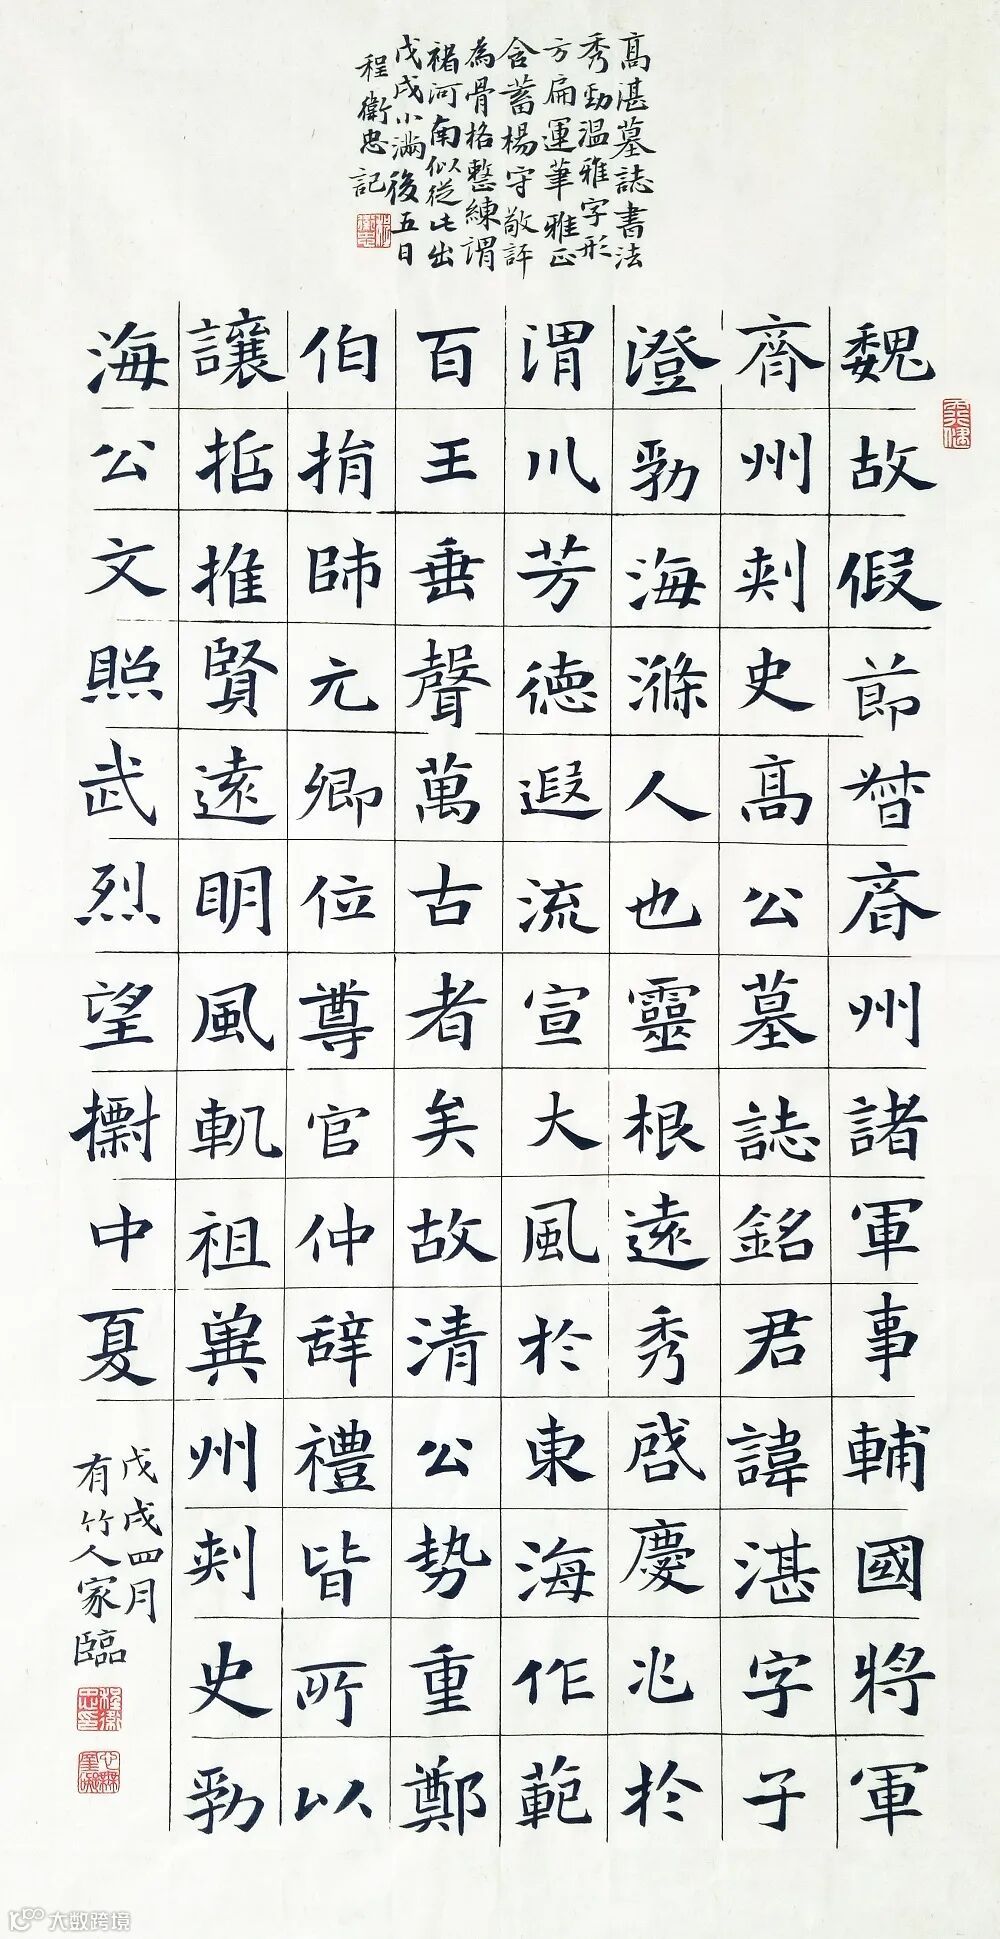 高湛墓誌書法
秀勁温雅字形
方扁運筆雅正
含蓄楊守敬評
為骨格整練謂
褚河南似從此出
戊戌小滿後五日
程衛忠記
魏故假節督齊州諸軍事輔國將軍
齊州刺史高公墓誌銘君諱湛字子
澄勃海滌人也靈根遠秀啓慶兆於
渭川芳德遐流宣大風於東海作範
百王垂聲萬古者矣故清公勢重鄭
伯捐師元卿位尊官仲辭禮皆所以
讓哲推賢遠明風軌祖冀州刺史勃
海公文照武烈望擲中夏
戊戌四月
有竹人家臨
大数跨境